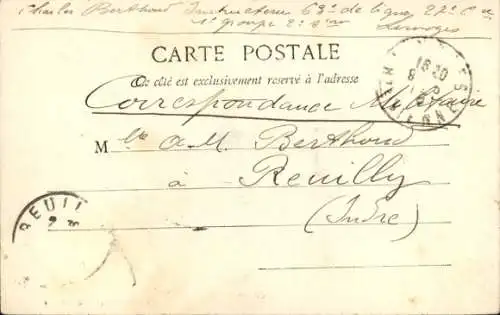 Charles Berthoud Instructeur 63e de ligne 22e Cie
1er groupe 2e
Limoges
CARTE POSTALE
Ce côté est exclusivement reservé à l'adresse
Correspondance Militaire
Mlle A-M. Berthoud
à Reuilly
(Indre)
16 30
REUIL